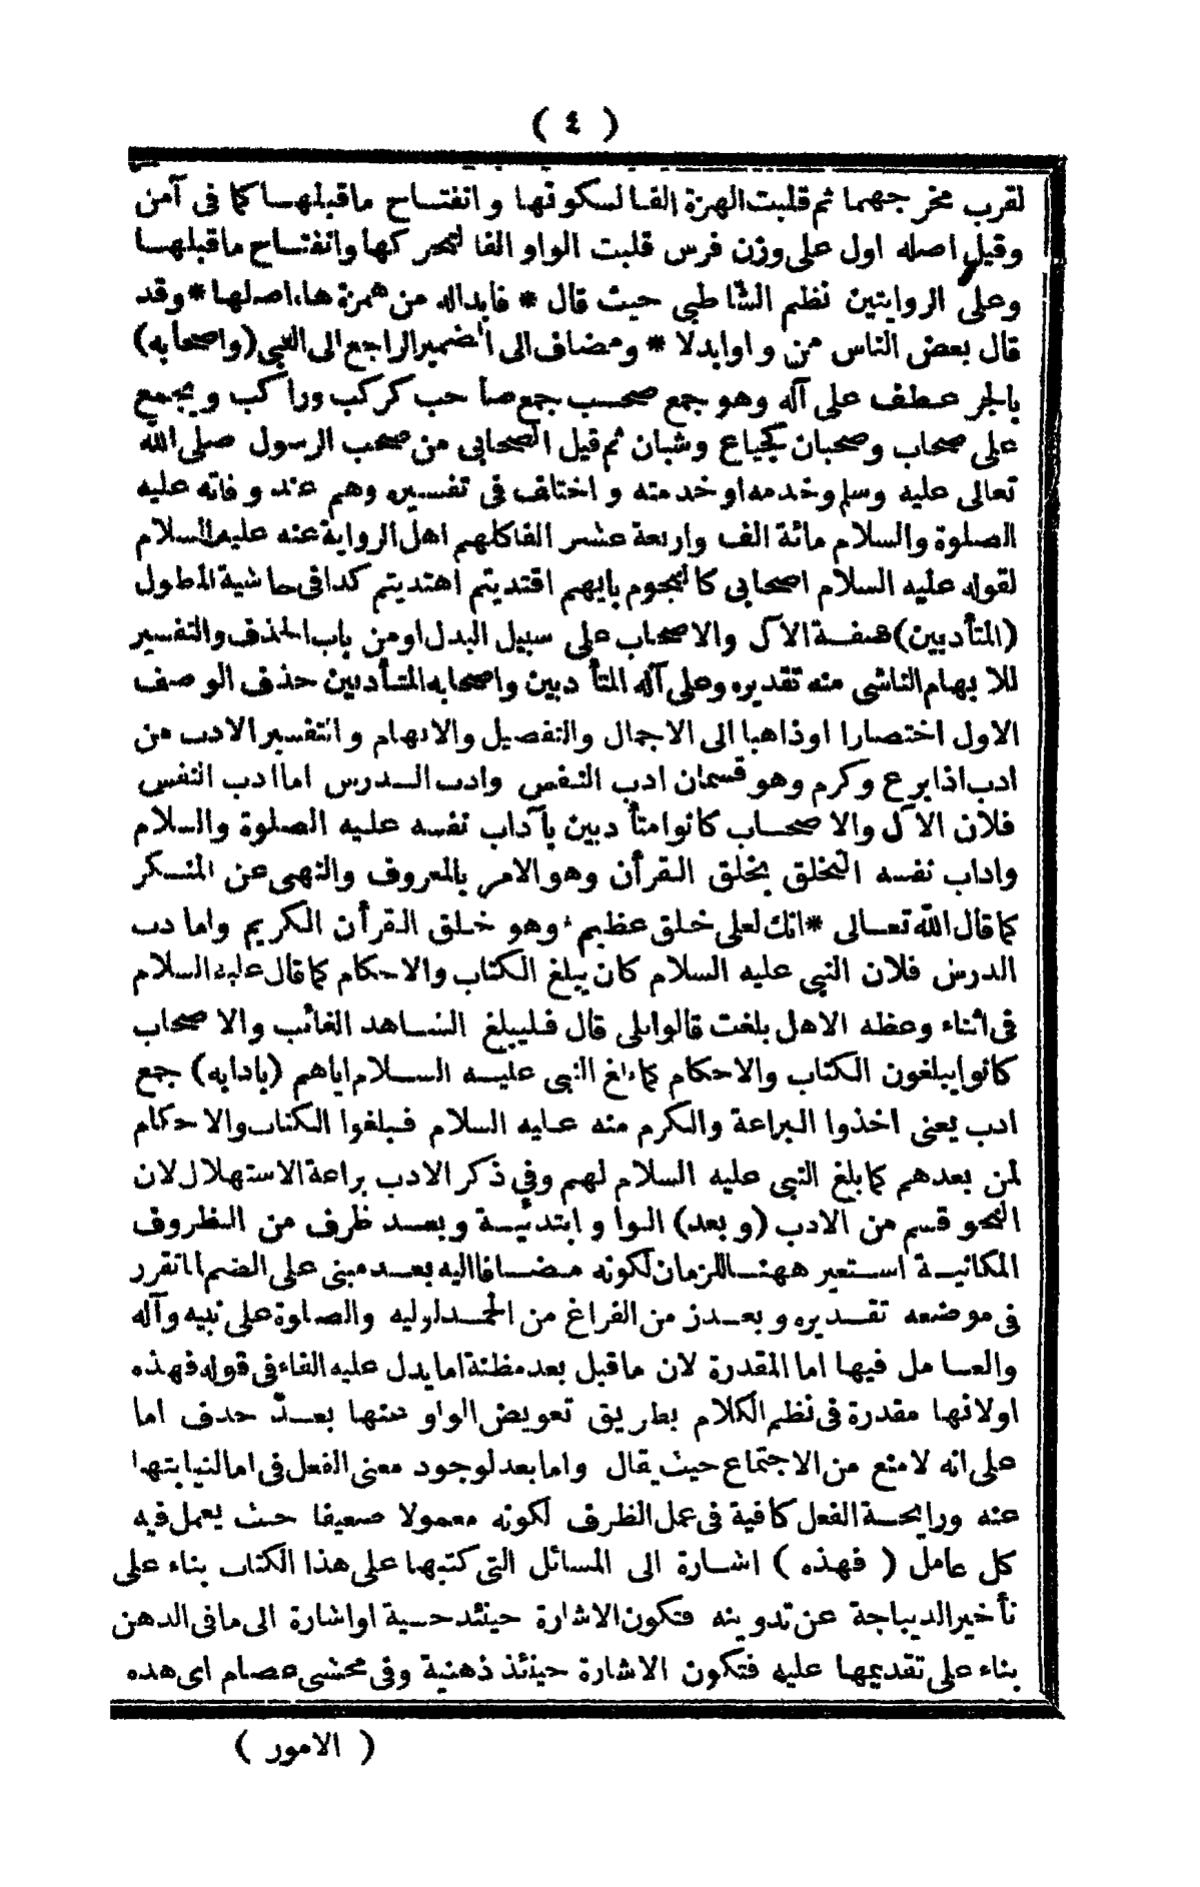 ( ٤ )
لقرب مخرجهما ثم قلبت الهمزة الفا لسكونها وانفتاح ماقبلها كما فى آمن
وقيل اصله اول على وزن فرس قلبت الواو الفا لتحركها وانفتاح ماقبلها
وعلى الروايتين نظم الشاطبى حيث قال * فابداله من همزة هاء اصلها * وقد
قال بعض الناس من واو ابدلا * ومضاف الى الضمير الراجع الى النبى (واصحابه)
بالجر عطف على آله وهو جمع صحب جمع صاحب كركب وراكب ويجمع
على صحاب وصحبان كجياع وشبان ثم قيل الصحابى من صحب الرسول صلى الله
تعالى عليه وسلم وخدمه او خدمته واختلف فى تفسيره وهم عند وفاته عليه
الصلوة والسلام مائة الف واربعة عشر الفا كلهم اهل الرواية عنه عليه السلام
لقوله عليه السلام اصحابى كالنجوم بايهم اقتديتم اهتديتم كذا فى حاشية المطول
(المتأدبين) صفة الآل والاصحاب على سبيل البدل او من باب الحذف والتفسير
للابهام الناشى منه تقديره وعلى آله المتأدبين واصحابه المتأدبين حذف الوصف
الاول اختصارا او ذاهبا الى الاجمال والتفصيل والابهام والتفسير الادب من
ادب اذا برع وكرم وهو قسمان ادب النفس وادب الدرس اما ادب النفس
فلان الآل والاصحاب كانوا متأدبين بآداب نفسه عليه الصلوة والسلام
واداب نفسه التخلق بخلق القرأن وهو الامر بالمعروف والنهى عن المنكر
كما قال الله تعالى * انك لعلى خلق عظيم * وهو خلق القرأن الكريم واما دب
الدرس فلان النبى عليه السلام كان يبلغ الكتاب والاحكام كما قال عليه السلام
فى اثناء وعظه الاهل بلغت قالوا بلى قال فليبلغ الشاهد الغائب والاصحاب
كانوا يبلغون الكتاب والاحكام كما بلغ النبى عليه السلام اياهم (بادابه) جمع
ادب يعنى اخذوا البراعة والكرم منه عليه السلام فبلغوا الكتاب والاحكام
لمن بعدهم كما بلغ النبى عليه السلام لهم وفى ذكر الادب براعة الاستهلال لان
النحو قسم من الادب (وبعد) الواو ابتدئية وبعد ظرف من الظروف
المكانية استعير ههنا للزمان لكونه مضافا اليه بعد مبنى على الضم لما تقرر
فى موضعه تقديره وبعد زمن الفراغ من الحمد لوليه والصلوة على نبيه وآله
والعامل فيها اما المقدرة لان ماقبل بعد مظنة اما يدل عليه الفاء فى قوله فهذه
اولانها مقدرة فى نظم الكلام بطريق تعويض الواو عنها بعد حذف اما
على انه لا منع من الاجتماع حيث يقال واما بعد لوجود معنى الفعل فى اما لنيابتها
عنه ورايحة الفعل كافية فى عمل الظرف لكونه معمولا ضعيفا حيث يعمل فيه
كل عامل ( فهذه ) اشارة الى المسائل التى كتبها على هذا الكتاب بناء على
تأخير الديباجة عن تدوينه فتكون الاشارة حينئذ حسية او اشارة الى ما فى الذهن
بناء على تقديمها عليه فتكون الاشارة حينئذ ذهنية وفى محشى عصام اى هذه
( الامور )